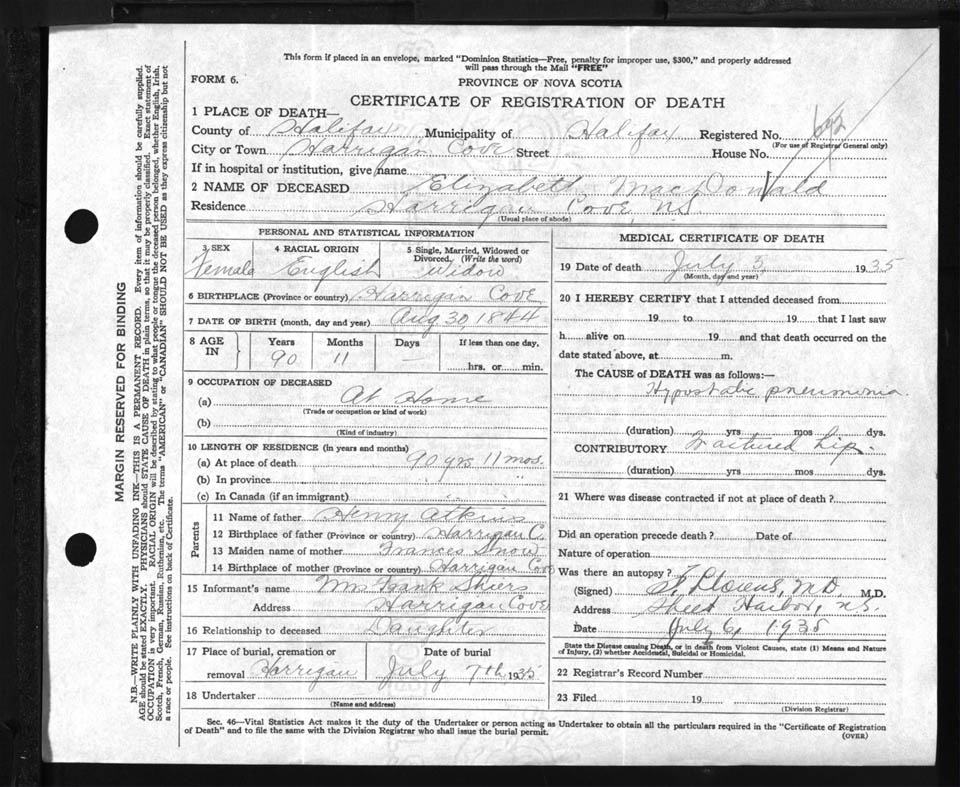 This form if placed in an envelope, marked "Dominion Statistics—Free, penalty for improper use, $300," and properly addressed
will pass through the Mail "FREE"
FORM 6.
PROVINCE OF NOVA SCOTIA
CERTIFICATE OF REGISTRATION OF DEATH
1 PLACE OF DEATH—
County of Halifax Municipality of Halifax Registered No. 692
(For use of Registrar General only)
City or Town Harrigan Cove Street House No.
If in hospital or institution, give name
2 NAME OF DECEASED Elizabeth MacDonald
Residence Harrigan Cove, NS.
(Usual place of abode)
PERSONAL AND STATISTICAL INFORMATION
3 SEX 4 RACIAL ORIGIN 5 Single, Married, Widowed or
Divorced, (Write the word)
Female English Widow
6 BIRTHPLACE (Province or country) Harrigan Cove
7 DATE OF BIRTH (month, day and year) Aug 30, 1844
8 AGE IN Years Months Days If less than one day,
90 11 — hrs. or min.
9 OCCUPATION OF DECEASED
(a) At Home
(Trade or occupation or kind of work)
(b)
(Kind of industry)
10 LENGTH OF RESIDENCE (in years and months)
(a) At place of death 90 yrs 11 mos.
(b) In province "
(c) In Canada (if an immigrant)
Parents
11 Name of father Henry Atkins
12 Birthplace of father (Province or country) Harrigan C.
13 Maiden name of mother Frances Snow
14 Birthplace of mother (Province or country) Harrigan Cove
15 Informant's name Mrs Frank Shiers
Address Harrigan Cove
16 Relationship to deceased Daughter
17 Place of burial, cremation or Date of burial
removal Harrigan July 7th 1935
18 Undertaker
(Name and address)
MEDICAL CERTIFICATE OF DEATH
19 Date of death July 3, 1935
(Month, day and year)
20 I HEREBY CERTIFY that I attended deceased from
19 to 19 that I last saw
h alive on 19 and that death occurred on the
date stated above, at m.
The CAUSE of DEATH was as follows:—
Hypostatic pneumonia.
(duration) yrs mos dys.
CONTRIBUTORY Fractured hip.
(duration) yrs mos dys.
21 Where was disease contracted if not at place of death?
Did an operation precede death? Date of
Nature of operation
Was there an autopsy?
(Signed) M.D. M.D.
Address Sheet Harbor, N.S.
Date July 6, 1935
State the Disease causing Death, or in death from Violent Causes, state (1) Means and Nature
of Injury, (2) whether Accidental, Suicidal or Homicidal.
22 Registrar's Record Number
23 Filed 19
(Division Registrar)
Sec. 46—Vital Statistics Act makes it the duty of the Undertaker or person acting as Undertaker to obtain all the particulars required in the "Certificate of Registration
of Death" and to file the same with the Division Registrar who shall issue the burial permit.
(OVER)
MARGIN RESERVED FOR BINDING
N.B.—WRITE PLAINLY WITH UNFADING INK—THIS IS A PERMANENT RECORD. Every item of information should be carefully supplied.
AGE should be stated EXACTLY. PHYSICIANS should STATE CAUSE OF DEATH in plain terms, so that it may be properly classified. Exact statement of
OCCUPATION is very important. RACIAL ORIGIN will be described by stating to what people or tongue the deceased person belonged, whether English, Irish,
Scotch, French, German, Russian, Ruthenian, etc. The terms "AMERICAN" or "CANADIAN" SHOULD NOT BE USED as they express citizenship but not
a race or people. See instructions on back of Certificate.